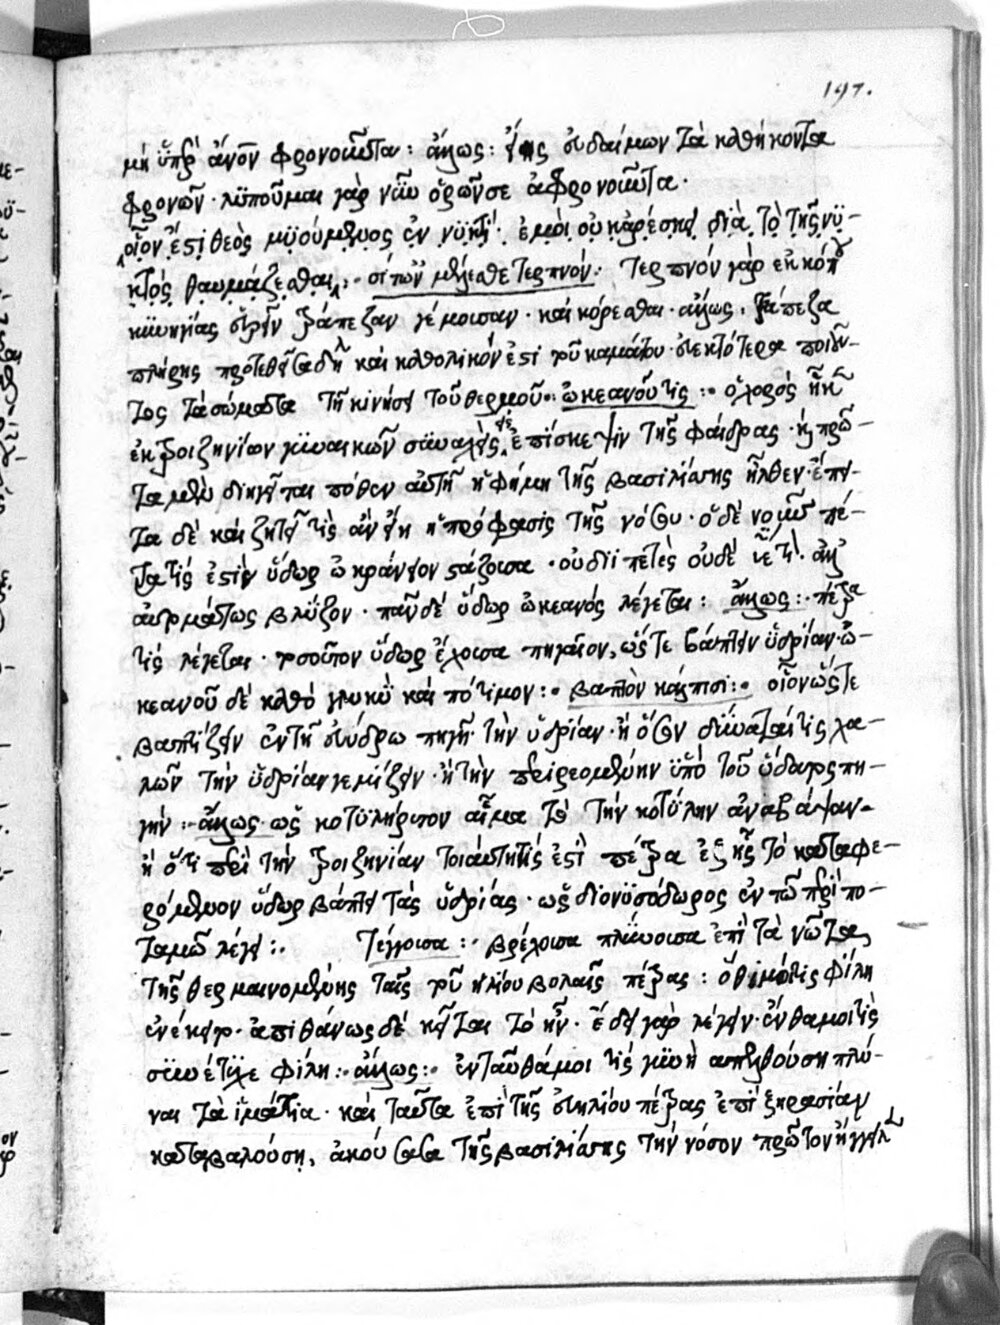 197.
μὴ ὑπὲρ ἄνον φρονοῦντα: ἄλλως: εἴης εὐδαίμων τὰ καθήκοντα
φρονῶν· λυποῦμαι γὰρ νῦν ὁρῶν σε ἀφρονοῦντα·
οἷον ἐστὶ θεὸς μϋούμενος ἐν νϋκτί· ἐμοὶ οὐκ ἀρέσκει διὰ τὸ τῆς νϋ-
κτὸς θαυμάζεσθαι: σίτων μέλεσθε τερπνόν: τερπνόν γὰρ ἐκ
κυνηγίας εὑρεῖν τράπεζαν γέμουσαν· καὶ κόρεσθαι· ἄλλως· τράπεζα
πλήρης καὶ καθολικόν ἐστι τοῦ καμάτου
τος τὰ σώματα τῇ κινήσει τοῦ θερμοῦ: ὠκεανοῦ τις: ὁ χορὸς ἥκει
ἐκ τροιζηνίων γυναικῶν εἰς ἐπίσκεψιν τῆς φαίδρας· καὶ πρῶ-
τα μὲν διηγεῖται πόθεν αὐτῇ ἡ φήμη τῆς βασιλίσσης ἦλθεν· ἔπει-
τα δὲ καὶ ζητεῖ τὶς ἂν εἴη ἡ πρόφασις τῆς νόσου· ὁ δὲ νοῦς πέ-
τρα τίς ἐστὶν ὕδωρ ὠκεάνειον στάζουσα· οὐ διϊπετὲς οὐδὲ
αὐτομάτως βλύζον· πᾶν δὲ ὕδωρ ὠκεανός λέγεται: ἄλλως: πέτρα
τίς λέγεται· τοσοῦτον ὕδωρ ἔχουσα πηγαῖον, ὥστε βάπτειν ὑδρίαν· ὠ-
κεανοῦ δὲ καθὸ γλυκὺ καὶ πότιμον: βαπτὰν κάλπισι: οἷον ὥστε
βαπτίζειν ἐν τῇ εὐύδρω πηγῇ τὴν ὑδρίαν· ἢ ὅθεν δύναταί τις χα-
λῶν τὴν ὑδρίαν γεμίζειν· ἢ τὴν περιρεομένην ὑπὸ τοῦ ὕδατος πη-
γήν: ἄλλως· ὡς κοτϋλήρυτον αἷμα τὸ τὴν κοτύλην ἀναβάψαν-
ἢ ὅτι περὶ τὴν τροιζηνίαν τοιαύτη τίς ἐστὶ πέτρα ἐξ ἧς τὸ καταφε-
ρόμενον ὕδωρ βάπτει τὰς ὑδρίας· ὡς διονϋσόδωρος ἐν τῷ περὶ πο-
ταμῶν λέγει: τέγγουσα: βρέχουσα πλύνουσα ἐπὶ τὰ νῶτα
τῆς θερμαινομένης ταῖς τοῦ ἡλίου βολαῖς πέτρας: ὅθι μοί τις φίλη
ἐνέκειτο· ἀπιθάνως δὲ κεῖται τὸ ἦν· ἔδει γὰρ λέγειν· ἔνθα μοι τὶς
συνέτυχε φίλη: ἄλλως: ἐνταῦθά μοι τὶς γυνὴ ἀπελθούση πλύ-
ναι τὰ ἱμάτια· καὶ ταῦτα ἐπὶ τῆς εὐηλίου πέτρας ἐπὶ ξηρασίαν
καταβαλούση, ἀκούσασα τῆς βασιλίσσης τὴν νόσον πρῶτον ἤγγειλ